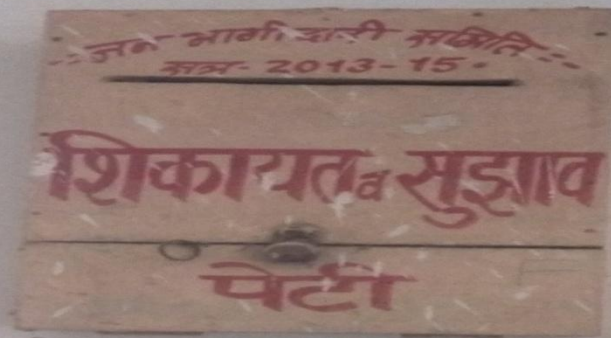 -:: जन भागीदारी समिति ::-
सत्र- 2013-15
शिकायत व सुझाव
पेटी